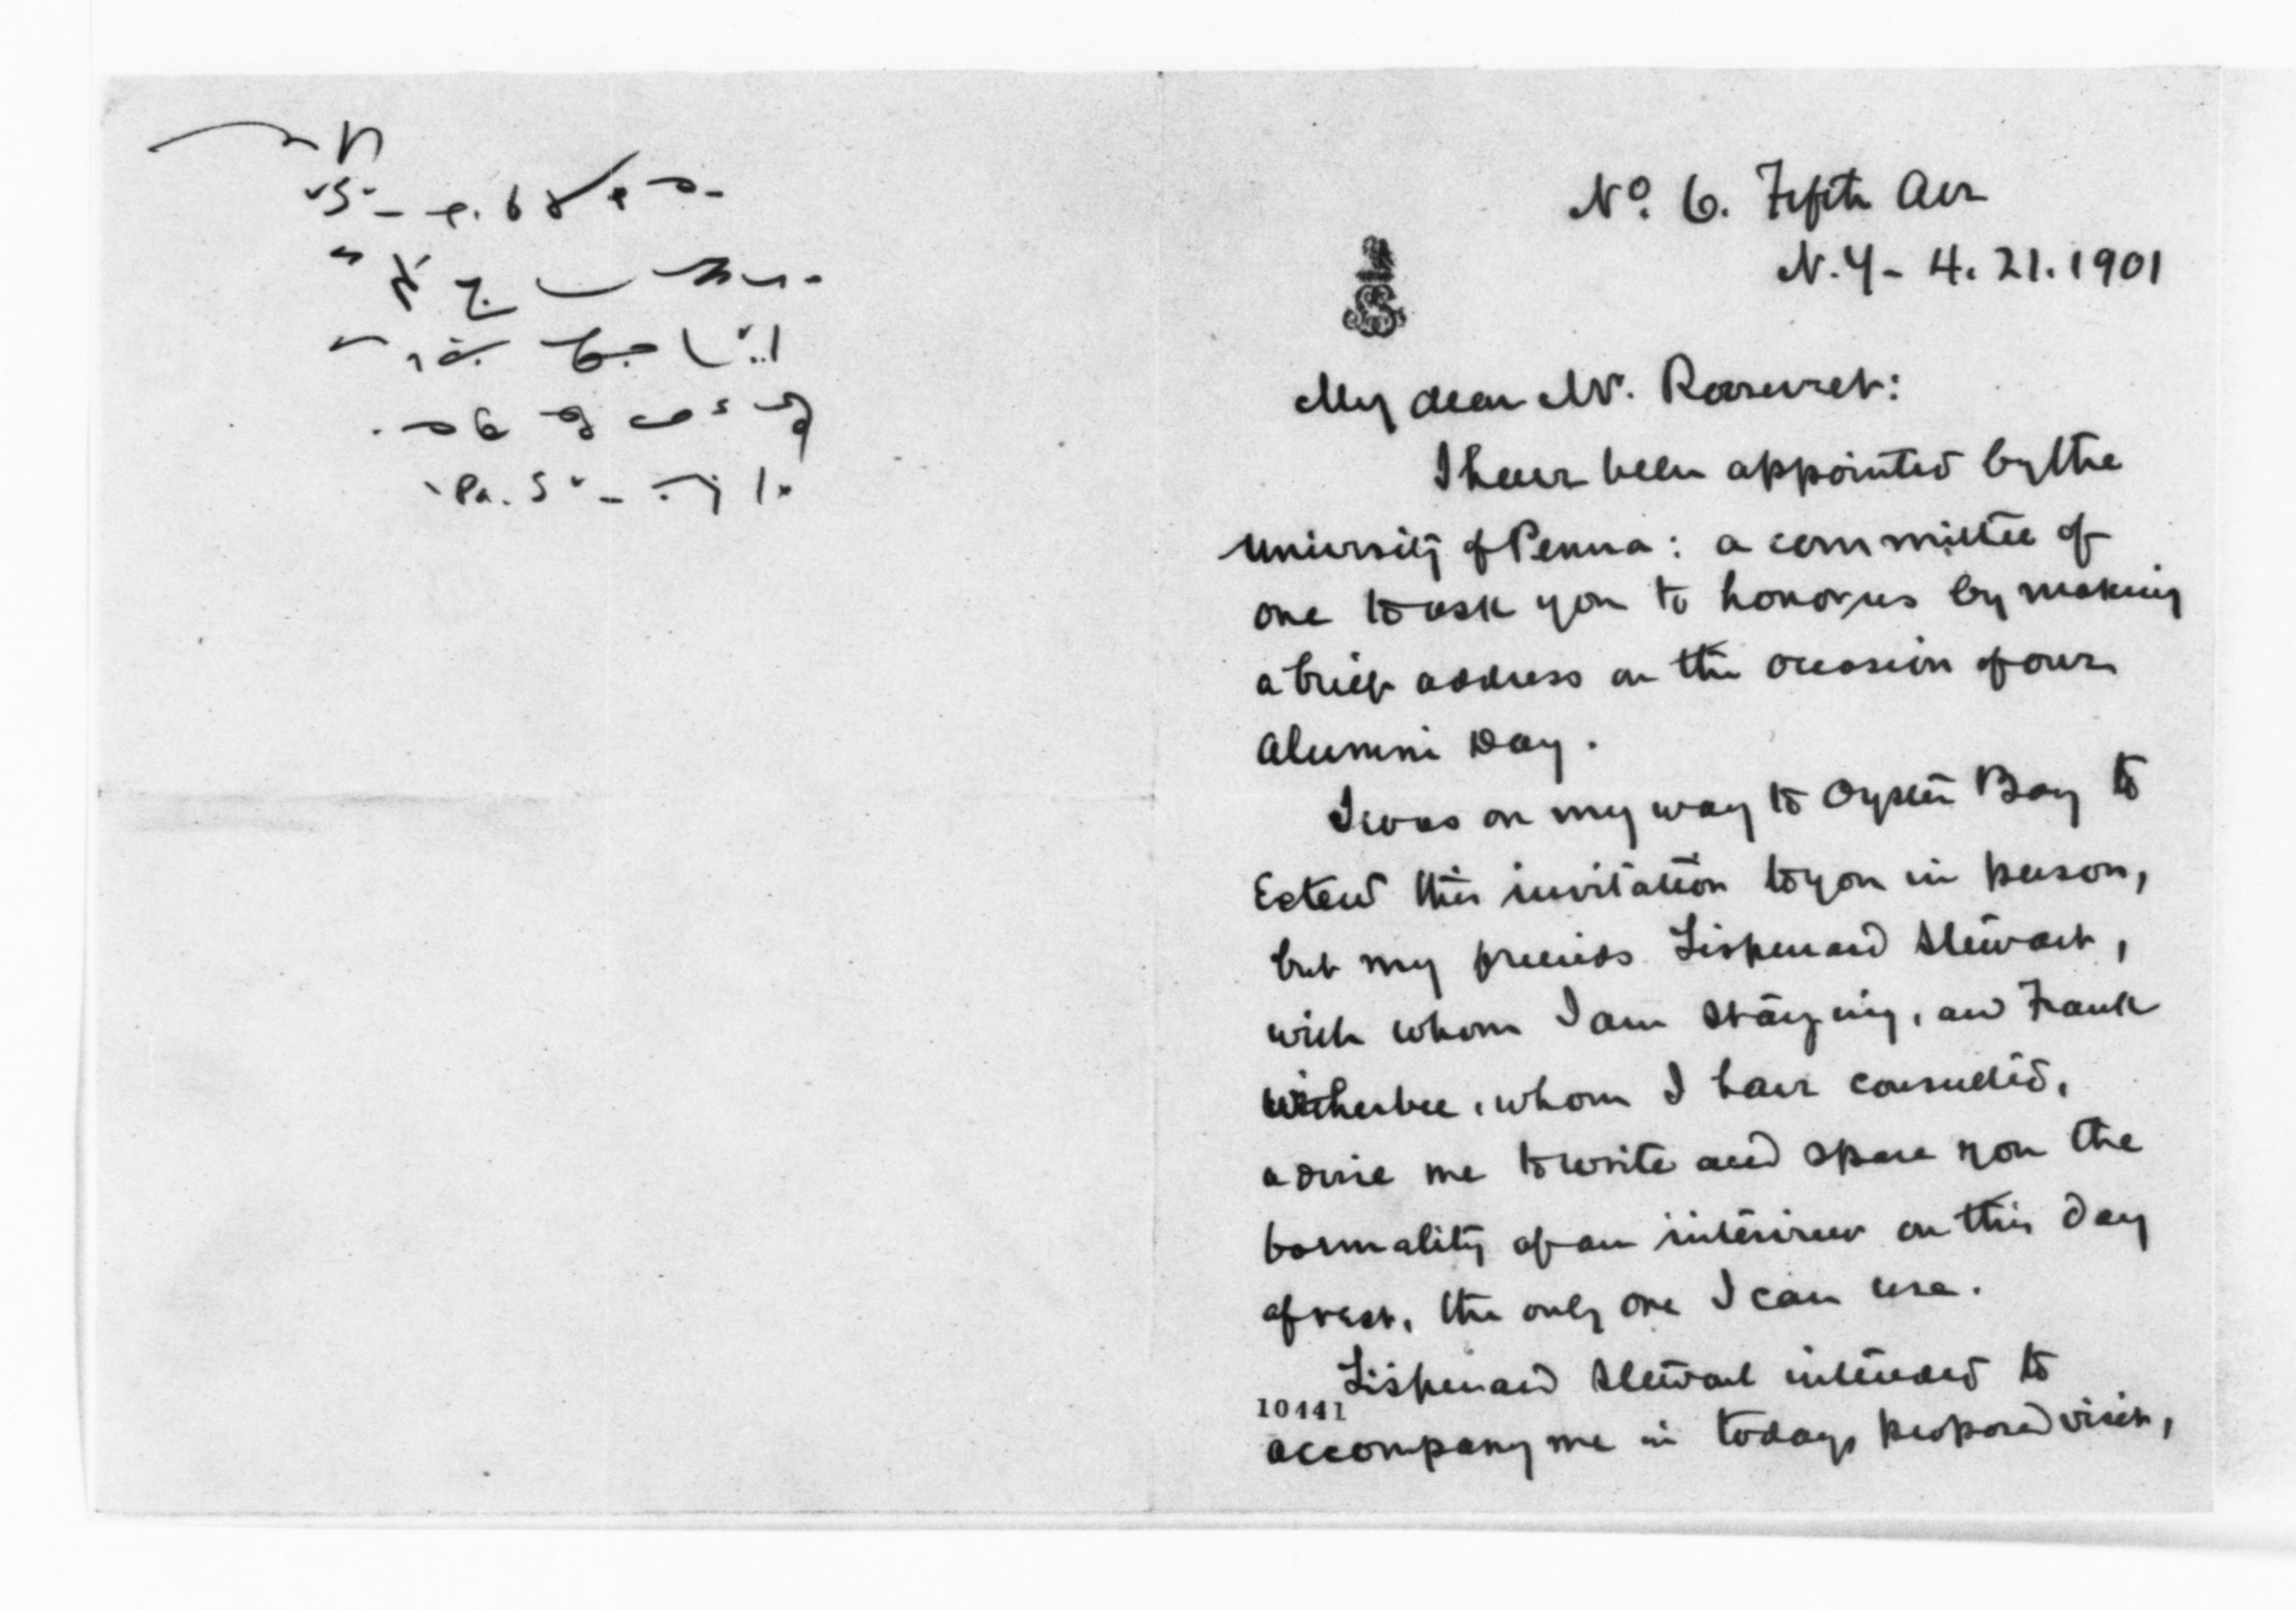 No. 6. Fifth Ave
N.Y - 4. 21. 1901
My dear Mr. Roosevelt:
I have been appointed by the
University of Penna: a committee of
one to ask you to honor us by making
a brief address on the occasion of our
Alumni Day.
I was on my way to Oyster Bay to
Extend this invitation to you in person,
but my friends Lispenard Stewart,
with whom I am staying, and Frank
Witherbee, whom I have consulted,
advise me to write and spare you the
formality of an interview on this day
of rest, the only one I can use.
Lispenard Stewart intended to
10441
accompany me in todays proposed visit,